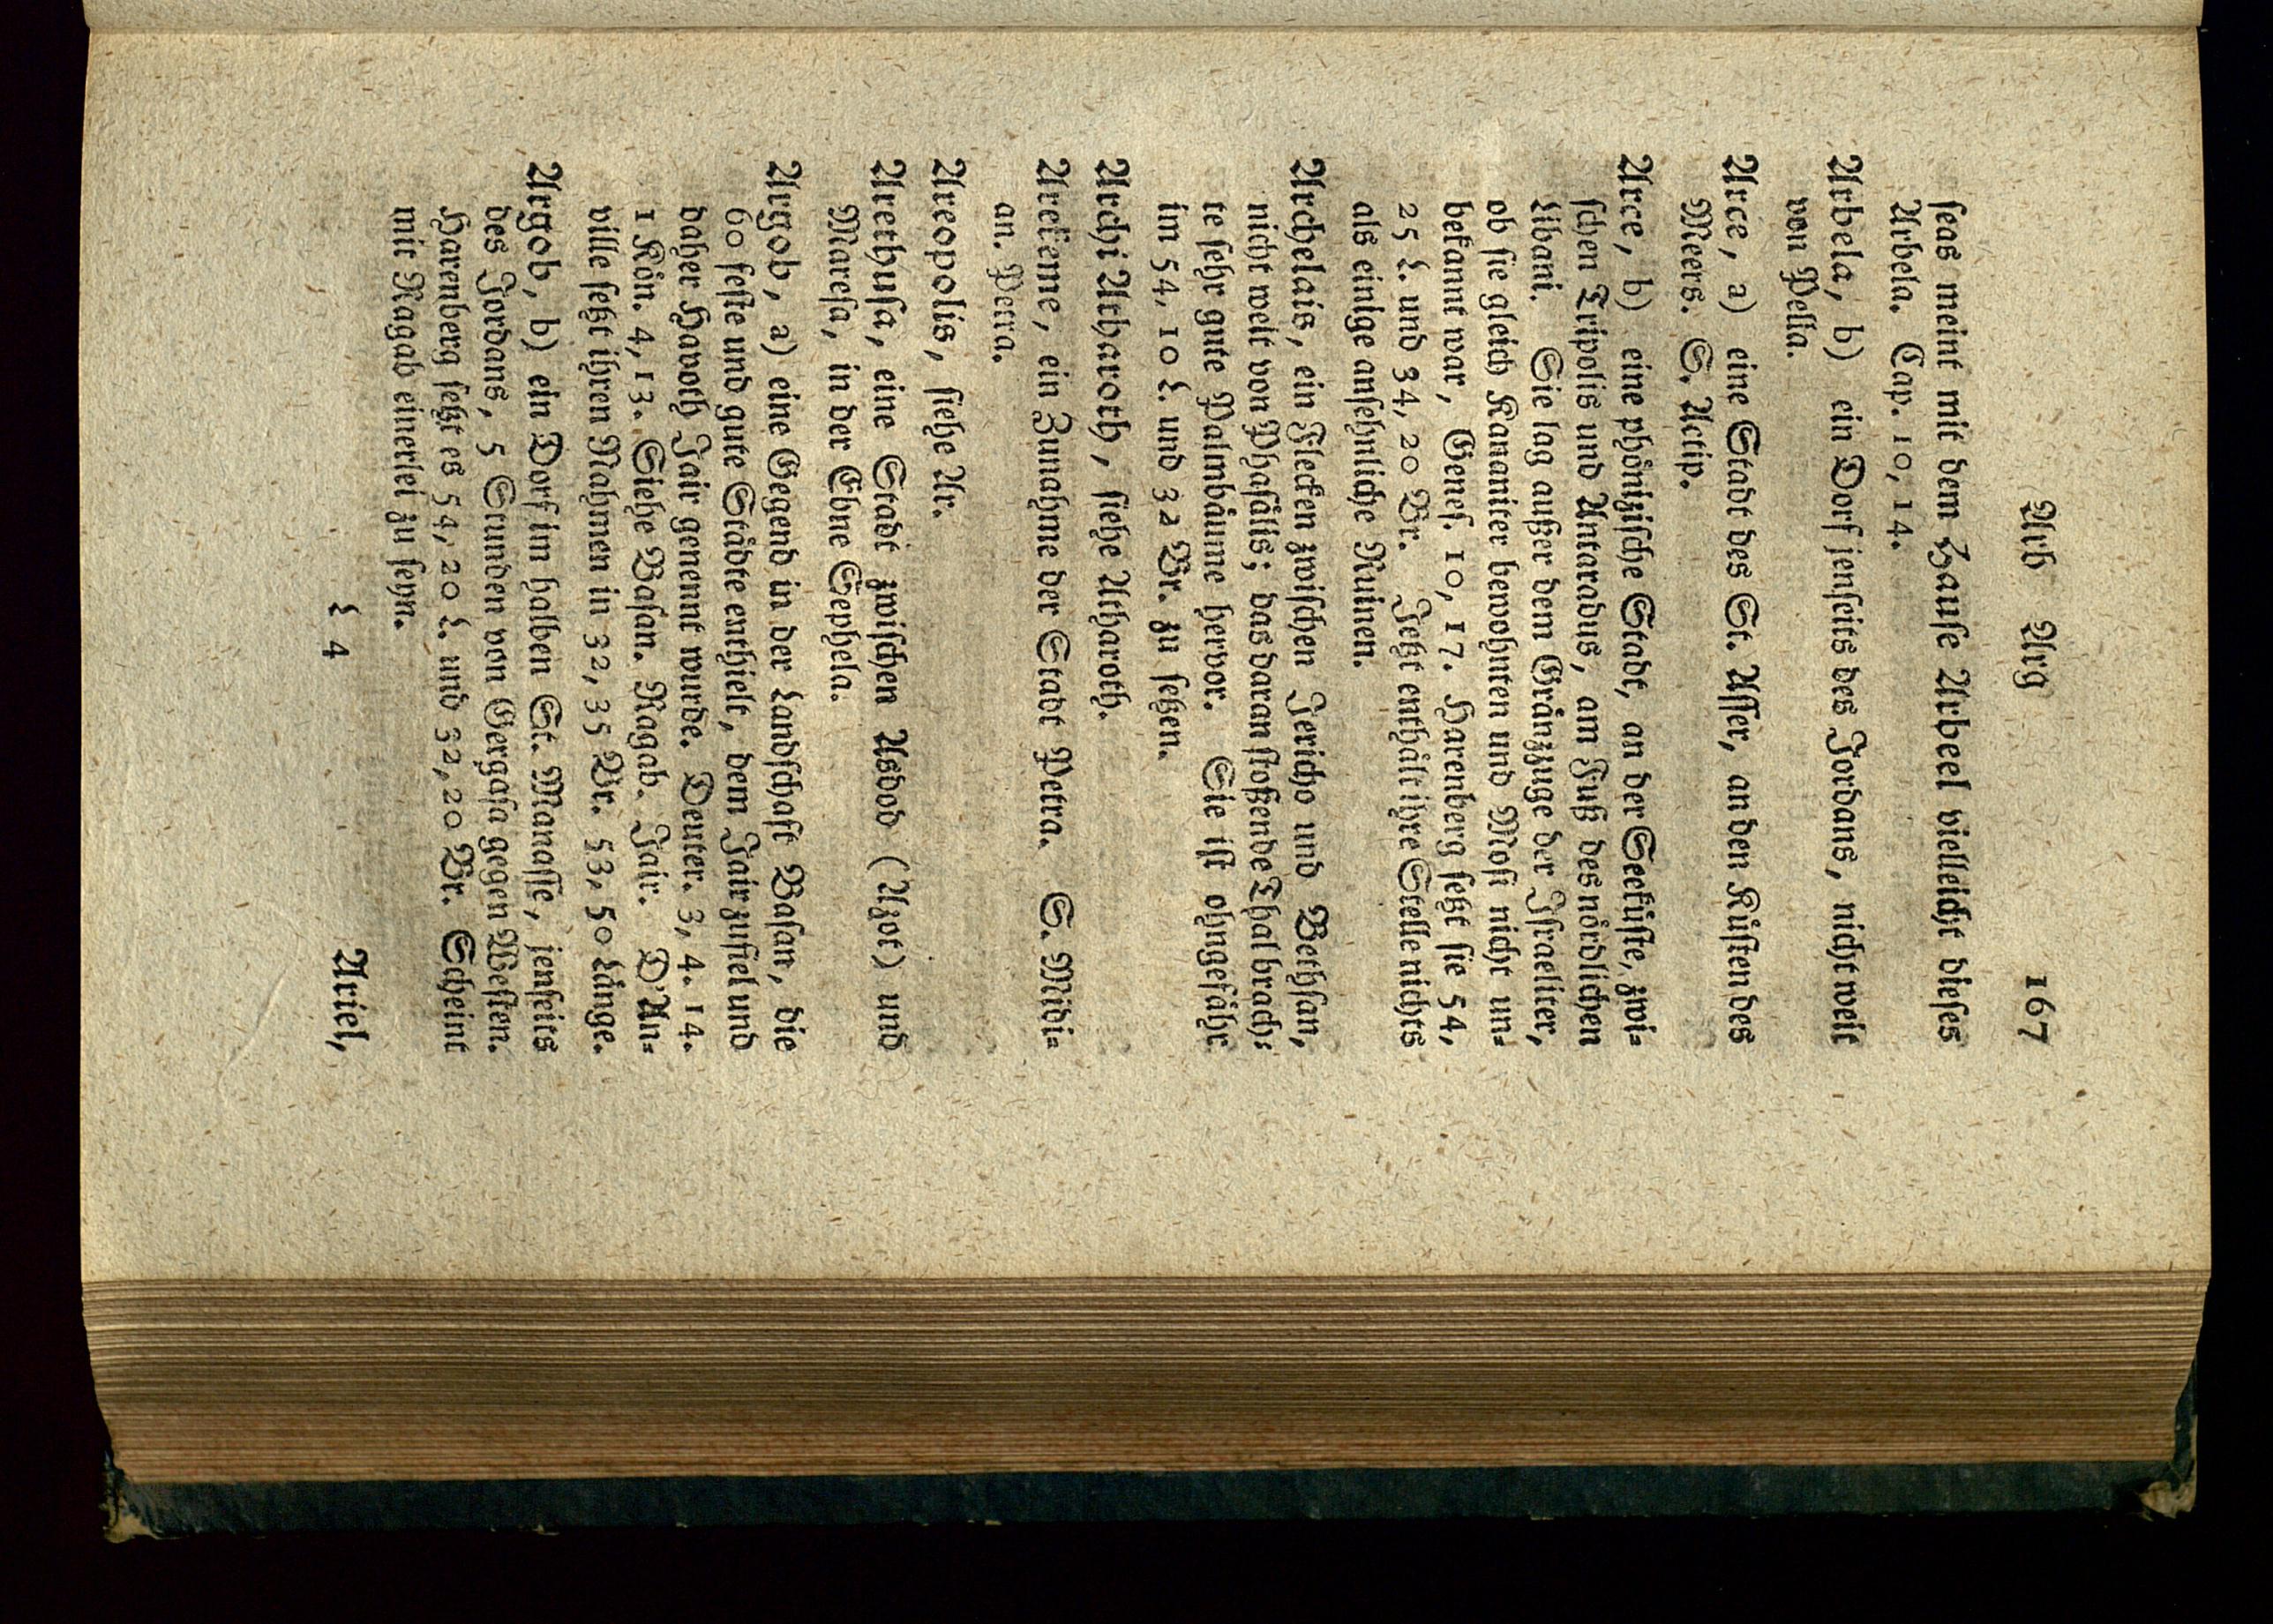 Arb Arg 167
ſeas meint mit dem Hauſe Arbeel vielleicht dieſes
Arbela. Cap. 10, 14.
Arbela, b) ein Dorf jenſeits des Jordans, nicht weit
von Pella.
Arce, a) eine Stadt des St. Aſſer, an den Küſten des
Meers. S. Actip.
Arce, b) eine phöniziſche Stadt, an der Seeküſte, zwi-
ſchen Tripolis und Antaradus, am Fuß des nördlichen
Libani. Sie lag außer dem Gränzuge der Iſraeliter,
ob ſie gleich Kananiter bewohnten und Moſi nicht un-
bekannt war, Geneſ. 10, 17. Harenberg ſetzt ſie 54,
25 L. und 34, 20 Br. Jetzt enthält ihre Stelle nichts
als einige anſehnliche Ruinen.
Archelais, ein Flecken zwiſchen Jericho und Bethſan,
nicht weit von Phaſälis; das daran ſtoßende Thal brach-
te ſehr gute Palmbäume hervor. Sie iſt ohngefähr
im 54, 10 L. und 32 Br. zu ſetzen.
Archi Atharoth, ſiehe Atharoth.
Areceme, ein Zunahme der Stadt Petra. S. Midi-
an. Petra.
Areopolis, ſiehe Ar.
Arethuſa, eine Stadt zwiſchen Asdod (Azot) und
Mareſa, in der Ebne Sephela.
Argob, a) eine Gegend in der Landſchaft Baſan, die
60 feſte und gute Städte enthielt, dem Jair zufiel und
daher Havoth Jair genennt wurde. Deuter. 3, 4. 14.
1 Kön. 4, 13. Siehe Baſan. Ragab. Jair. D'An-
ville ſetzt ihren Nahmen in 32, 35 Br. 53, 50 Länge.
Argob, b) ein Dorf im halben St. Manaſſe, jenſeits
des Jordans, 5 Stunden von Gergaſa gegen Weſten.
Harenberg ſetzt es 54, 20 L. und 32, 20 Br. Scheint
mit Ragab einerlei zu ſeyn.
L 4 Ariel,